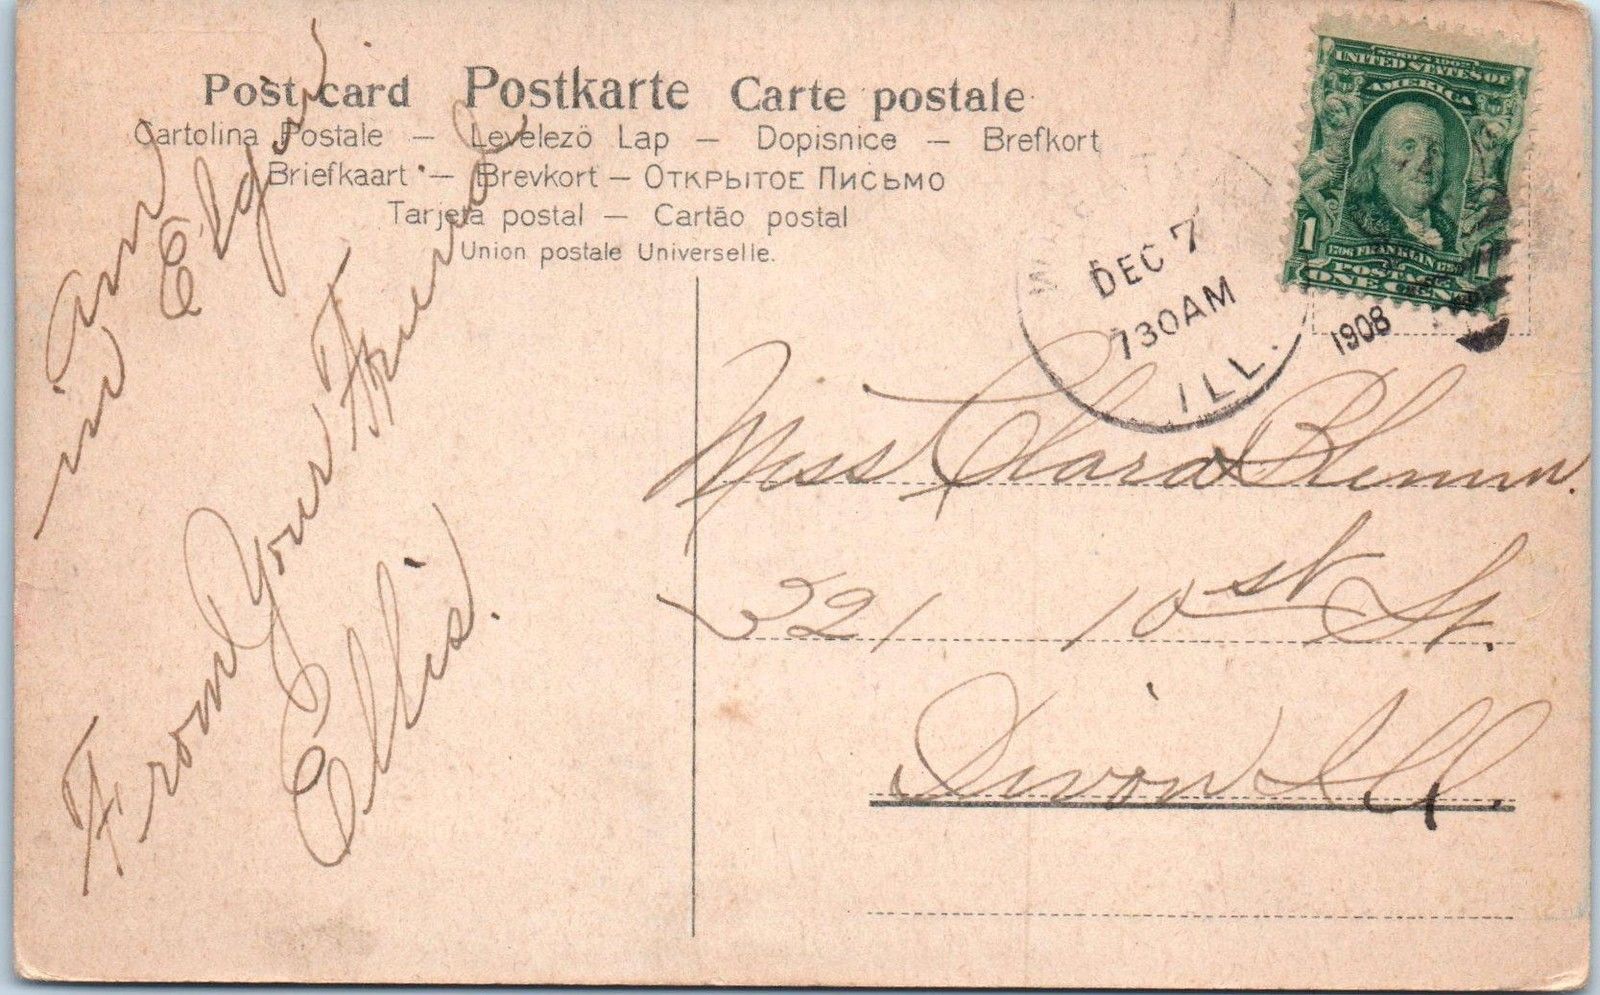 Post card Postkarte Carte postale
Cartolina Postale — Levelezö Lap — Dopisnice — Brefkort
Briefkaart — Brevkort — Открытое Письмо
Tarjeta postal — Cartão postal
Union postale Universelle.
SERIES 1902
UNITED STATES OF
AMERICA
1 1
FRANKLIN
POSTAGE
ONE CENT
DEC 7
730AM
1908
ILL.
am
in Elgin
From Your Friend
Ellis.
Miss Clara
321 10st St.
Dixon Ill.